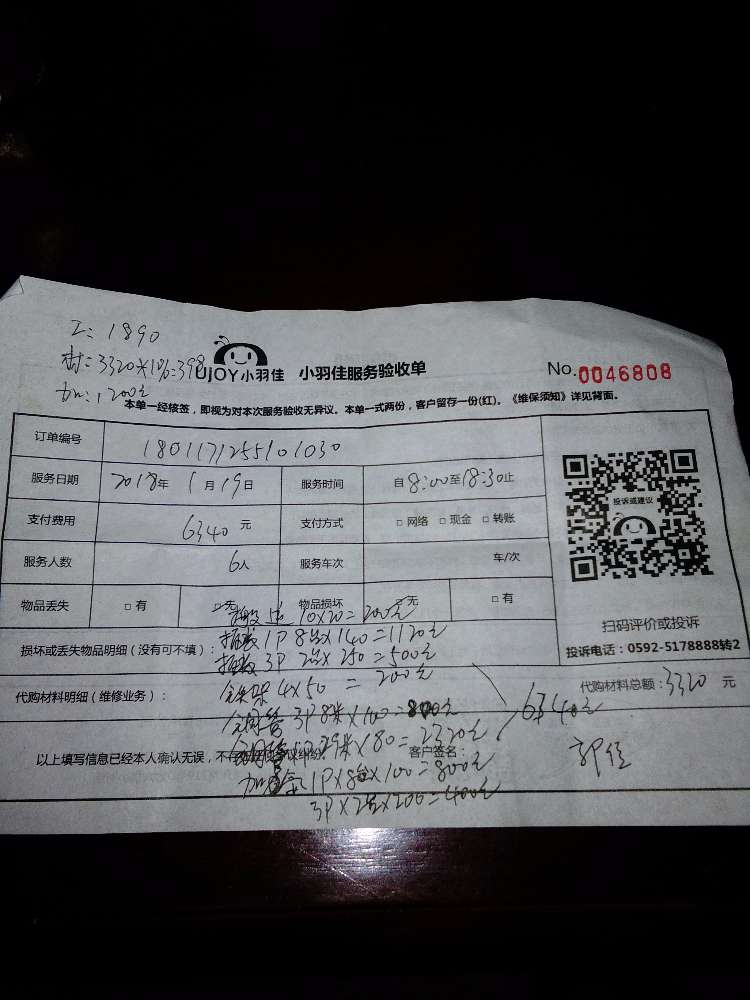 工: 1890
材: 3320*1%=398
加: 1200元
UJOY小羽佳 小羽佳服务验收单
No.0046808
本单一经核签，即视为对本次服务验收无异议。本单一式两份，客户留存一份(红)。《维保须知》详见背面。
订单编号 180117125510 1030
服务日期 2018年 1月19日 服务时间 自8:00至18:30止
支付费用 6340元 支付方式 □网络 □现金 □转账
服务人数 6人 服务车次 车/次
投诉或建议
物品丢失 □有 □无 物品损坏 □无 □有
10×20=200元
扫码评价或投诉
投诉电话：0592-5178888转2
1P 8台×140=1120元
损坏或丢失物品明细（没有可不填）：
3P 2台×250=500元
代购材料明细（维修业务）：
铁架4×50=200元
代购材料总额：3320元
铜管3P8米×100=800元
6340元
29米×80=2320元
以上填写信息已经本人确认无误，不存在任何争议纠纷
客户签名：
加氟1P×8台×100=800元
3P×2台×200=400元